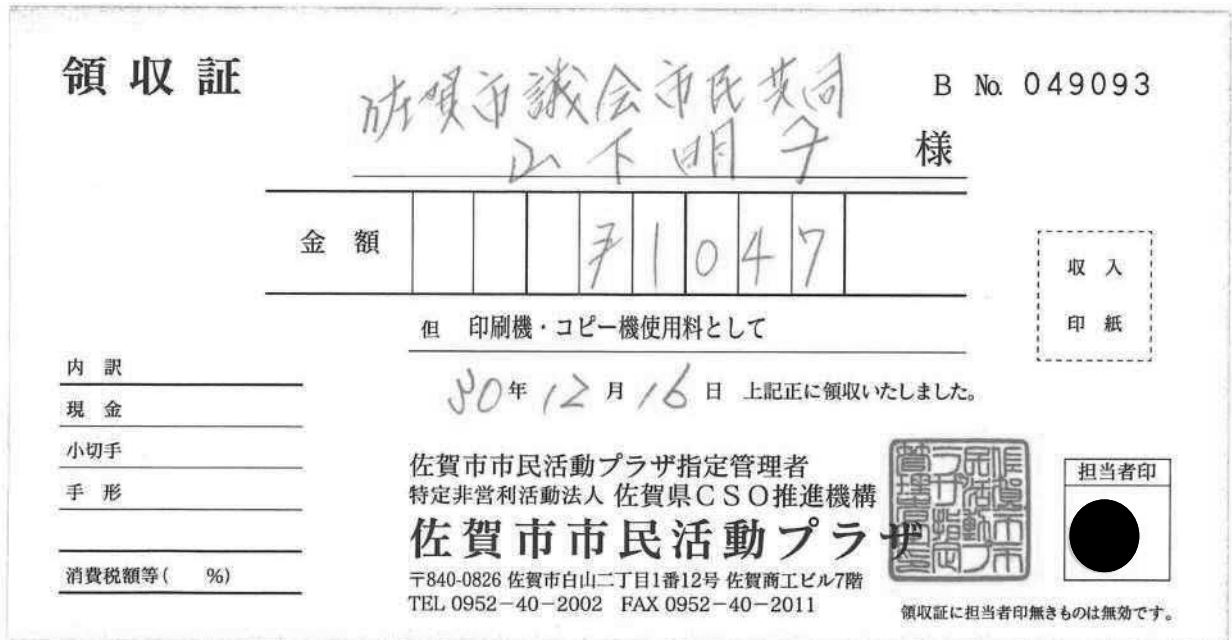 領収証
B No. 049093
佐賀市議会市民共同
山下明子 様
金額 ¥1047
収入
印紙
但 印刷機・コピー機使用料として
30年12月16日 上記正に領収いたしました。
内訳
現金
小切手
手形
消費税額等( %)
佐賀市市民活動プラザ指定管理者
特定非営利活動法人 佐賀県CSO推進機構
佐賀市市民活動プラザ
〒840-0826 佐賀市白山二丁目1番12号 佐賀商工ビル7階
TEL 0952-40-2002 FAX 0952-40-2011
担当者印
領収証に担当者印無きものは無効です。